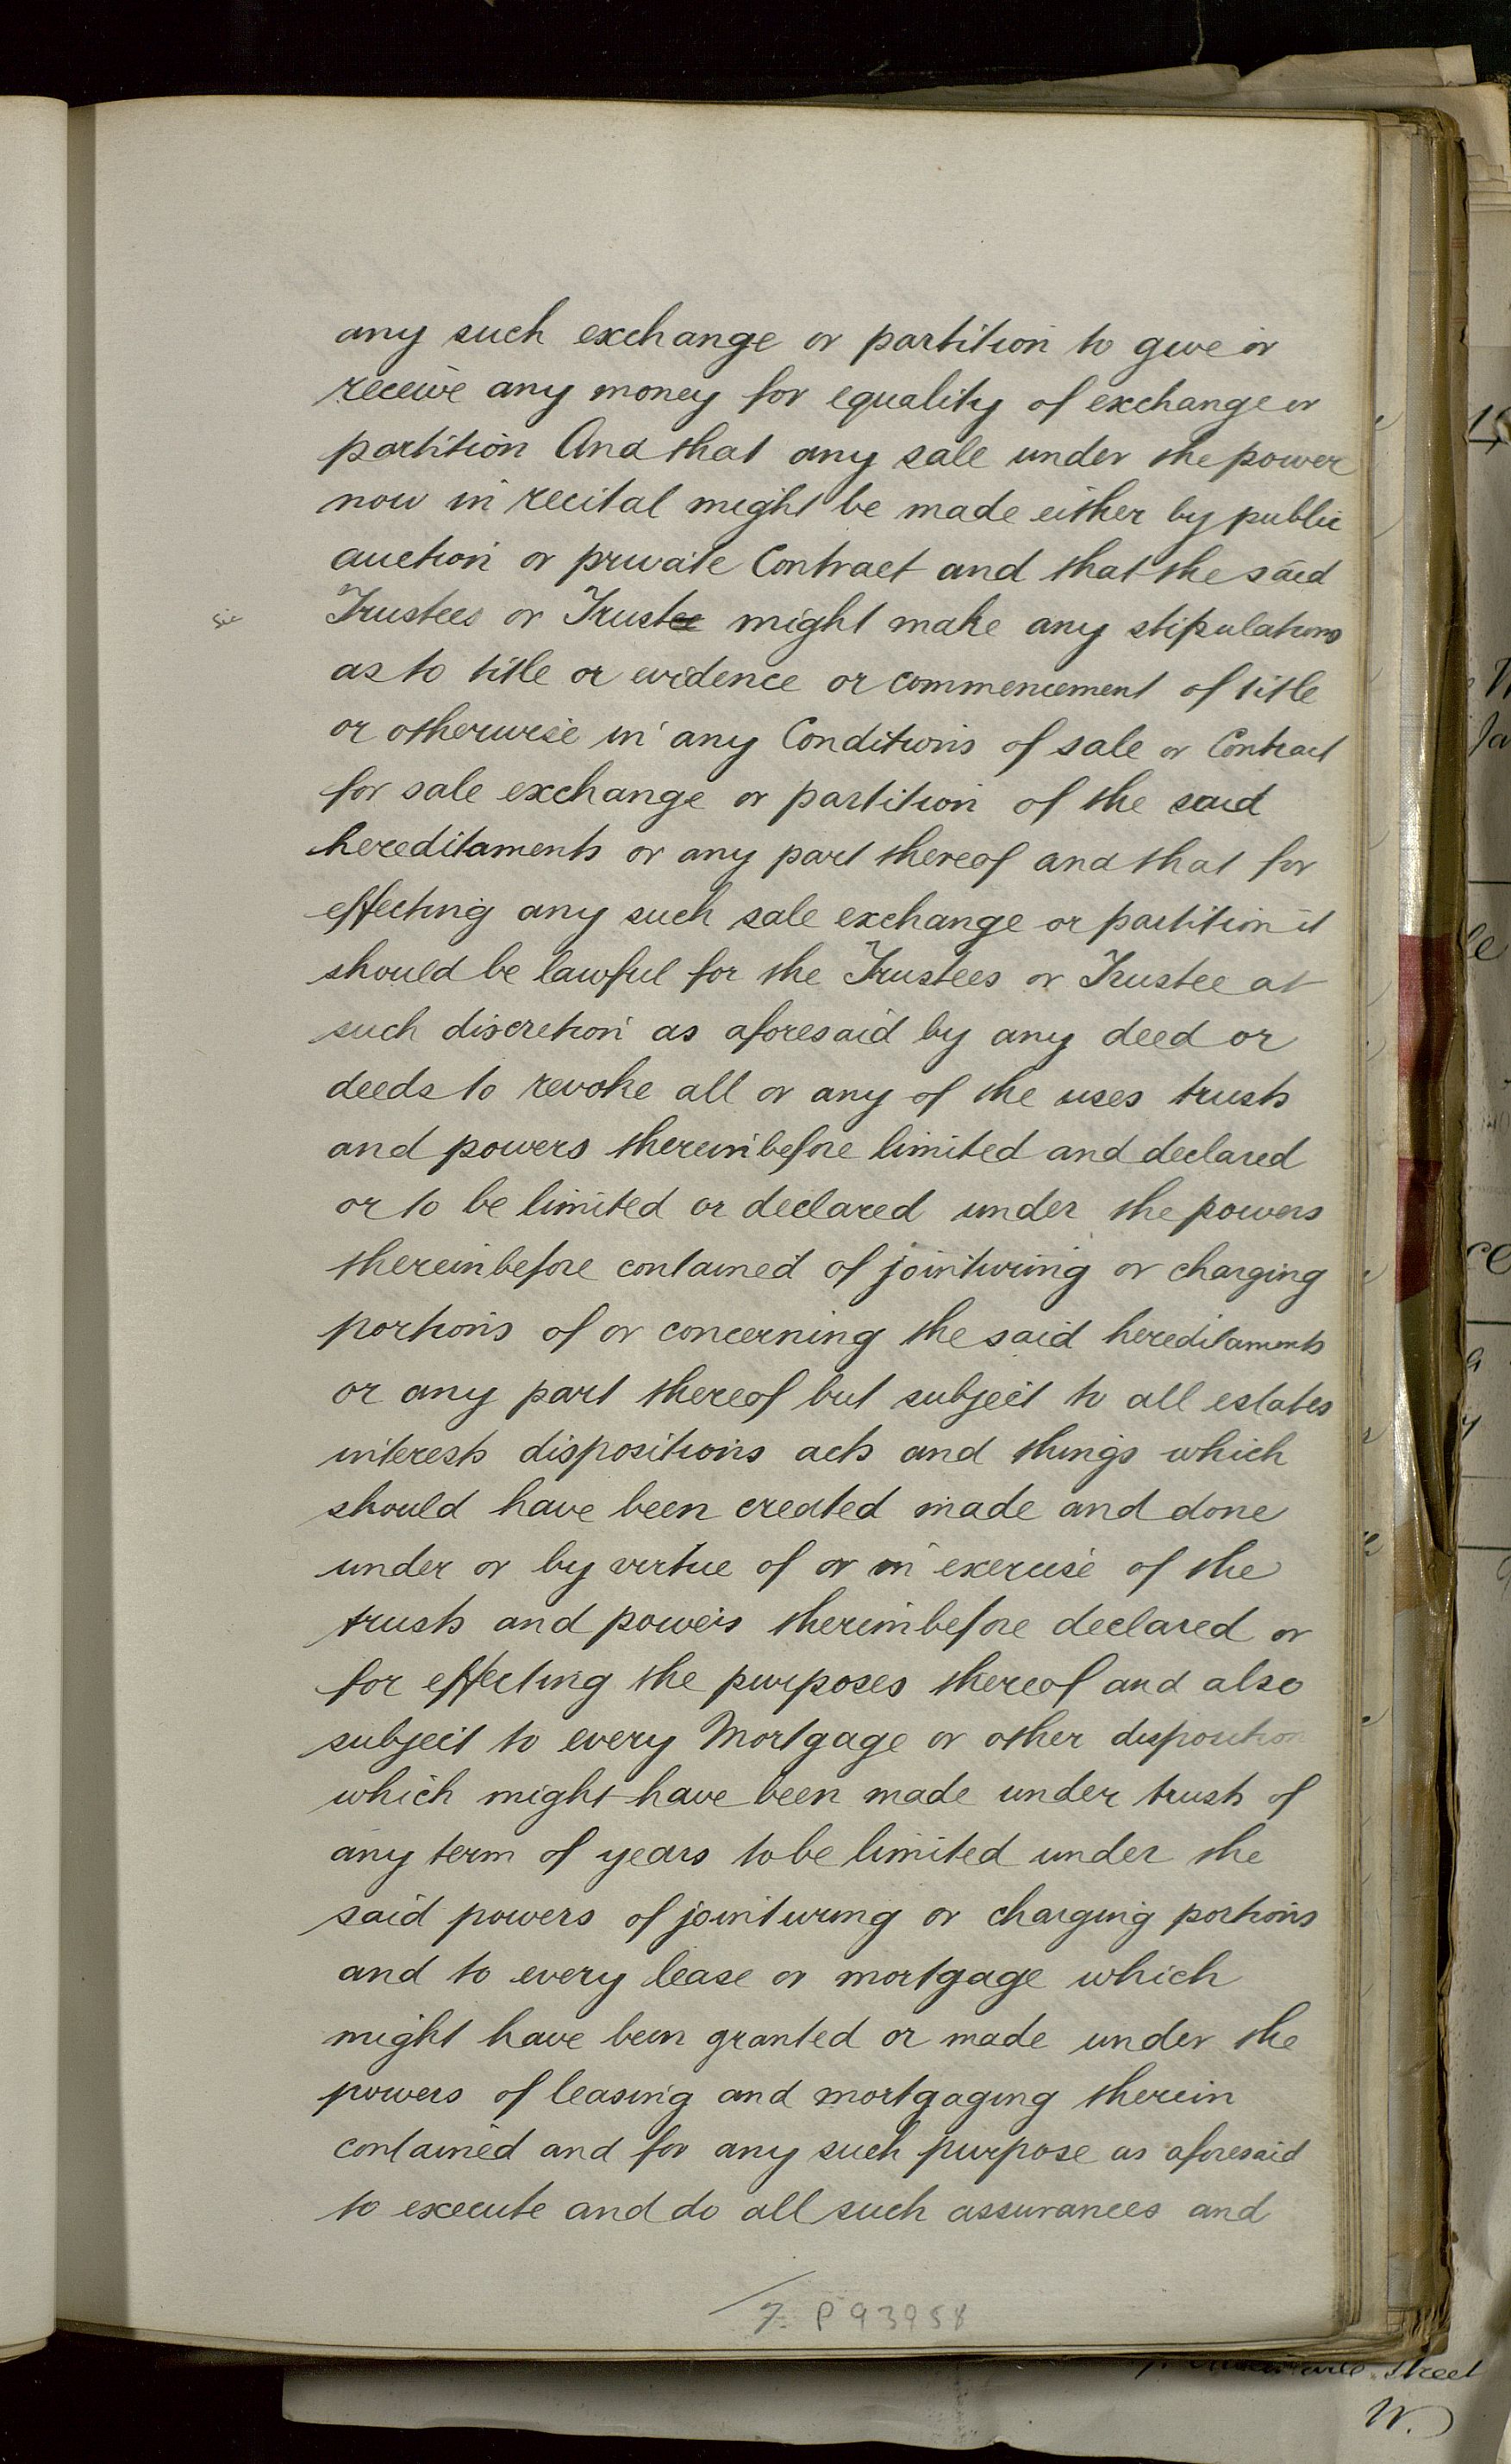 any such exchange or partition to give or
receive any money for equality of exchange or
partition And that any sale under the power
now in recital might be made either by public
auction or private Contract and that the said
sic Trustees or Trustee might make any stipulations
as to title or evidence or commencement of title
or otherwise in any Conditions of sale or Contract
for sale exchange or partition of the said
hereditaments or any part thereof and that for
effecting any such sale exchange or partition it
should be lawful for the Trustees or Trustee at
such discretion as aforesaid by any deed or
deeds to revoke all or any of the uses trusts
and powers thereinbefore limited and declared
or to be limited or declared under the powers
thereinbefore contained of jointuring or charging
portions of or concerning the said hereditaments
or any part thereof but subject to all estates
interests dispositions acts and things which
should have been created made and done
under or by virtue of or in exercise of the
trusts and powers thereinbefore declared or
for effecting the purposes thereof and also
subject to every Mortgage or other disposition
which might have been made under trusts of
any term of years to be limited under the
said powers of jointuring or charging portions
and to every lease or mortgage which
might have been granted or made under the
powers of leasing and mortgaging therein
contained and for any such purpose as aforesaid
to execute and do all such assurances and
7. P93958
Street
W.